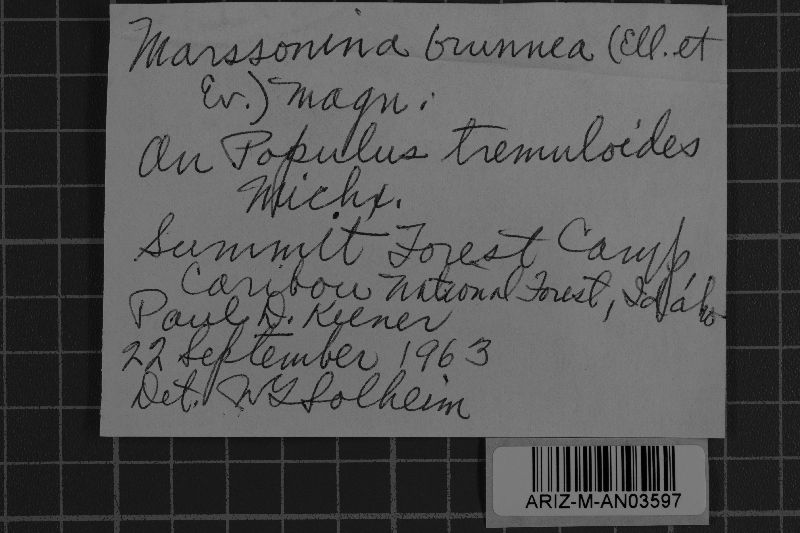 Marssonina brunnea (Ell. et
Ev.) Magn.
On Populus tremuloides
Michx.
Summit Forest Camp
Caribou National Forest, Idaho
Paul D. Keener
22 September 1963
Det. WG Solheim
ARIZ-M-AN03597